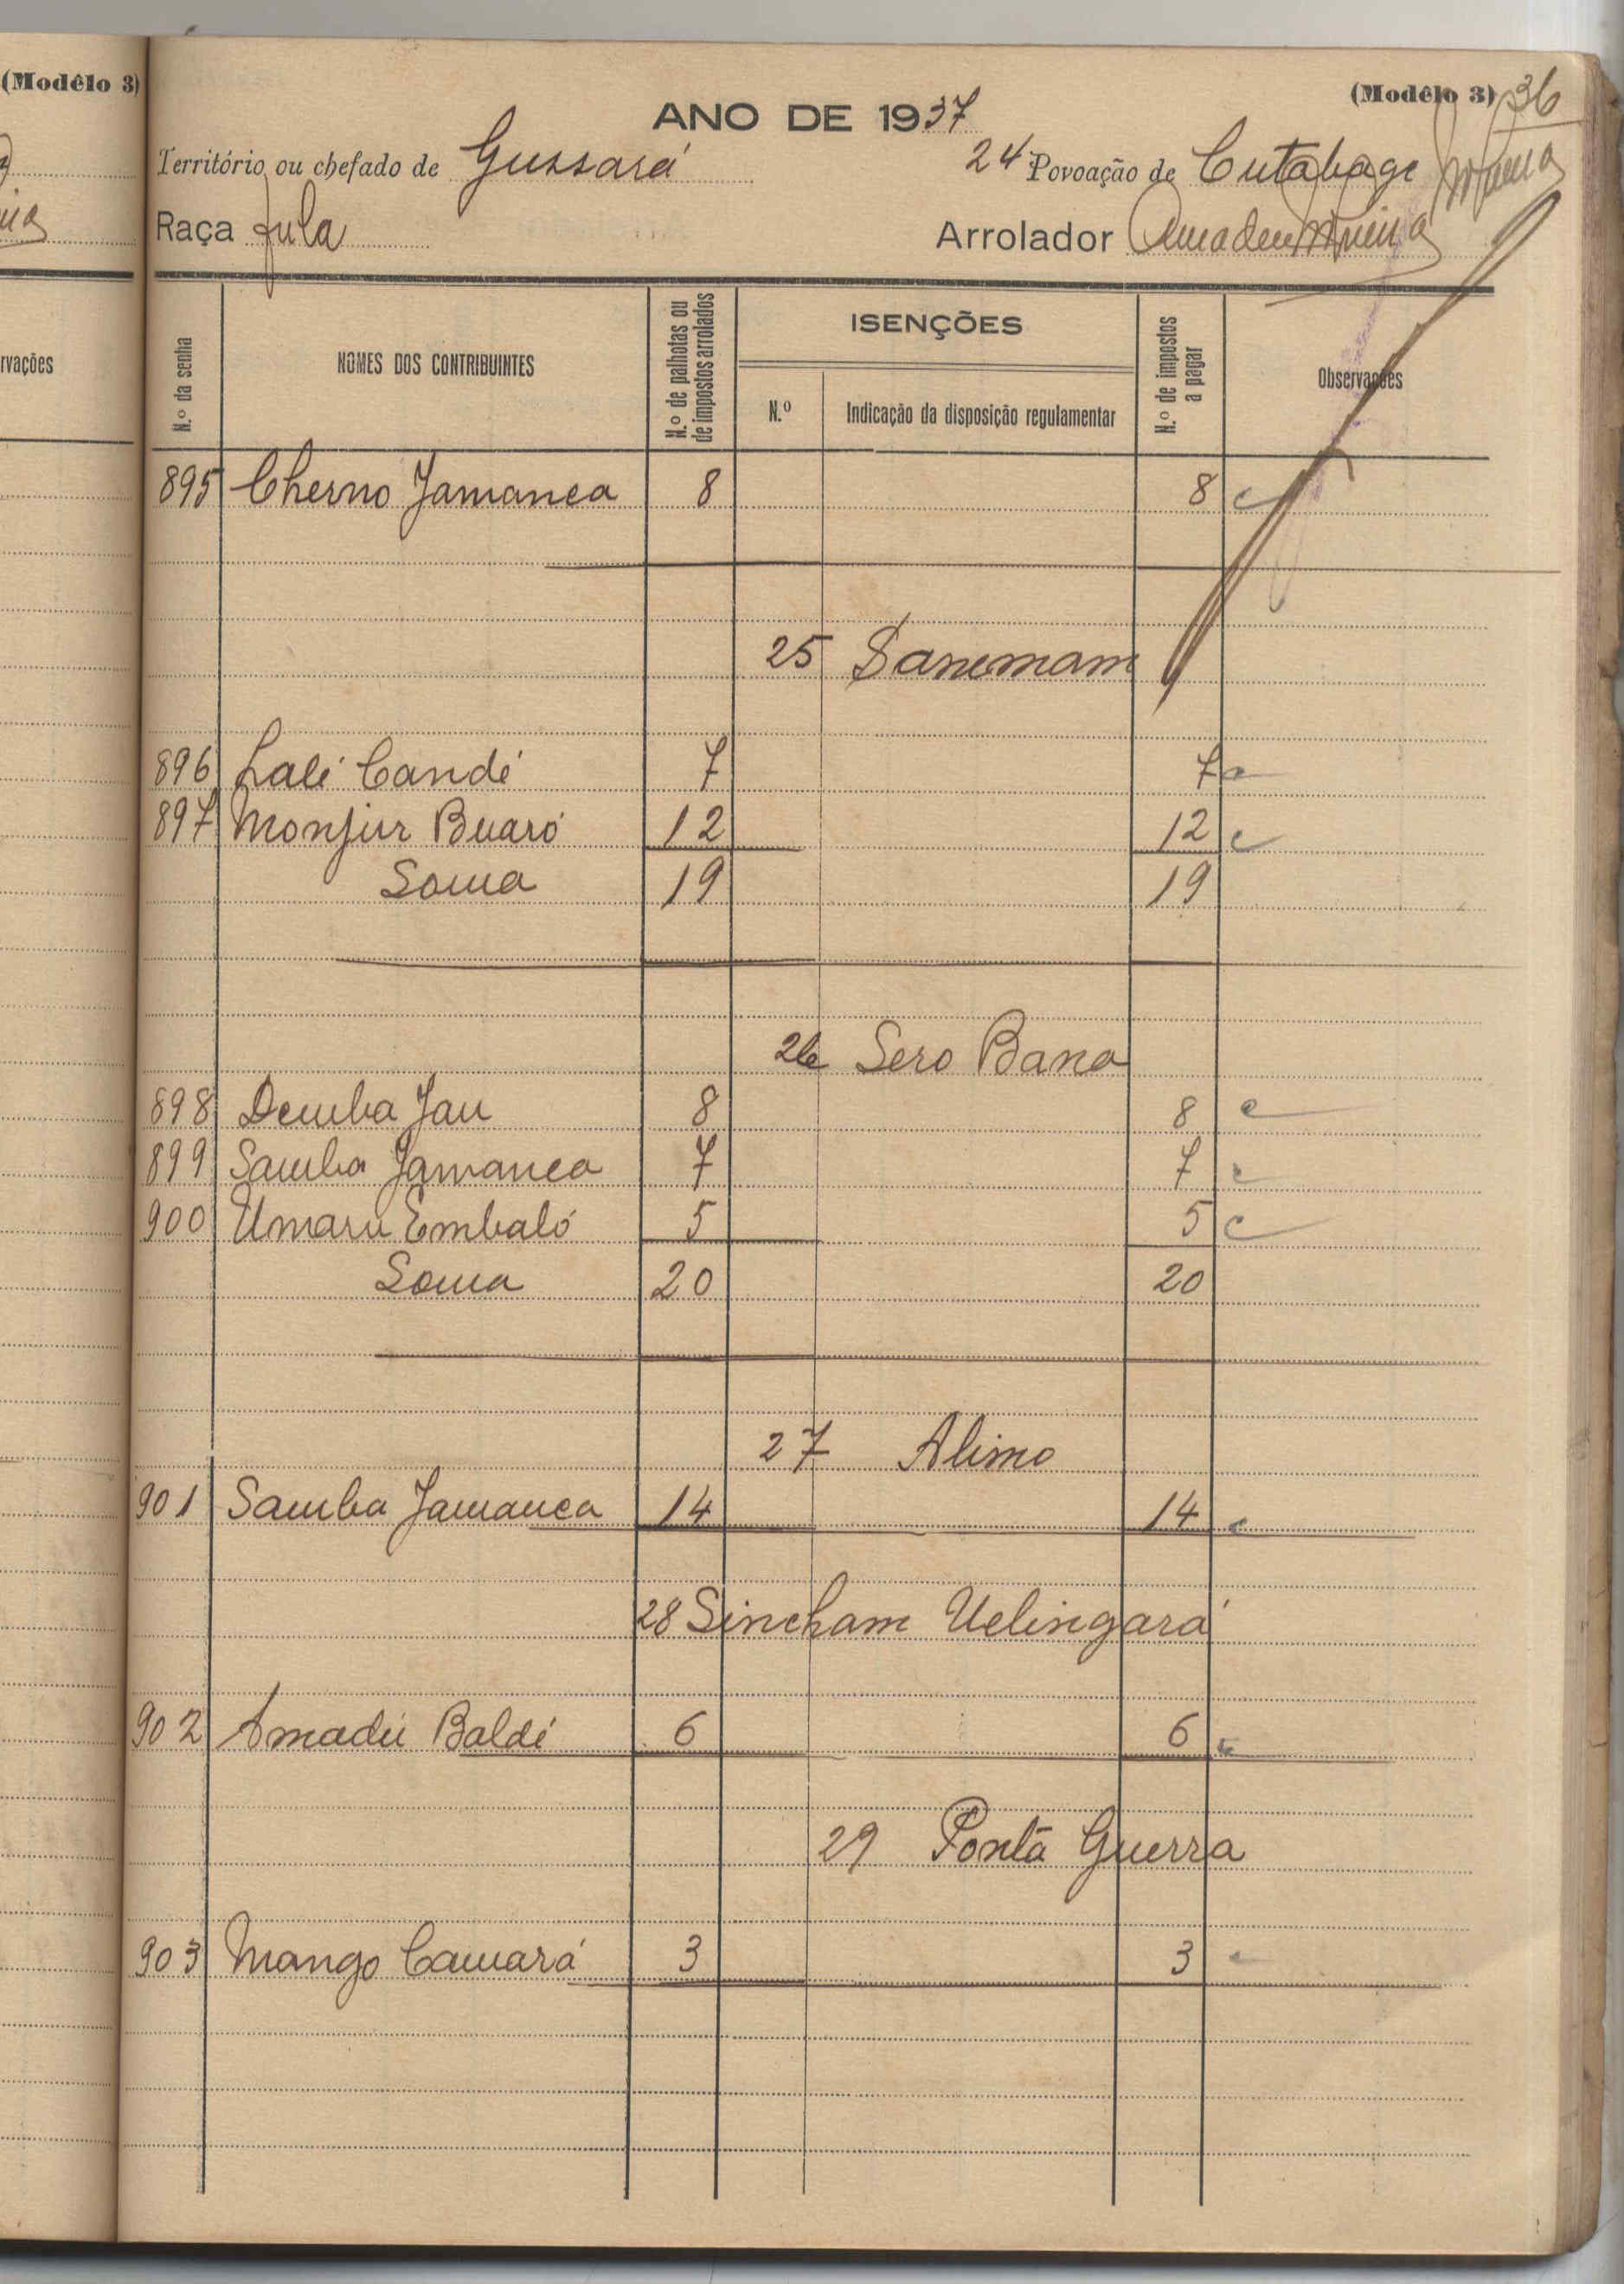 (Modêlo 3)
(Modêlo 3) 36
ANO DE 1937
Território ou chefado de Gussará 24 Povoação de Cutabage
Raça Fula Arrolador Amadeu
rvações
N.º da senha NOMES DOS CONTRIBUINTES N.º de palhotas ou de impostos arrolados ISENÇÕES N.º Indicação da disposição regulamentar N.º de impostos a pagar Observações
895 Cherno Jamanca 8 8 c
25 Sanemam
896 Lalé Candé 7 7 c
897 Monjur Buaró 12 12 c
Soma 19 19
26 Sero Bana
898 Demba Jau 8 8 c
899 Samba Jamanca 7 7 c
900 Umaru Embaló 5 5 c
Soma 20 20
27 Alimo
901 Samba Jamanca 14 14 c
28 Sincham Uelingará
902 Amadú Baldé 6 6 c
29 Pontã Guerra
903 Mango Camará 3 3 c